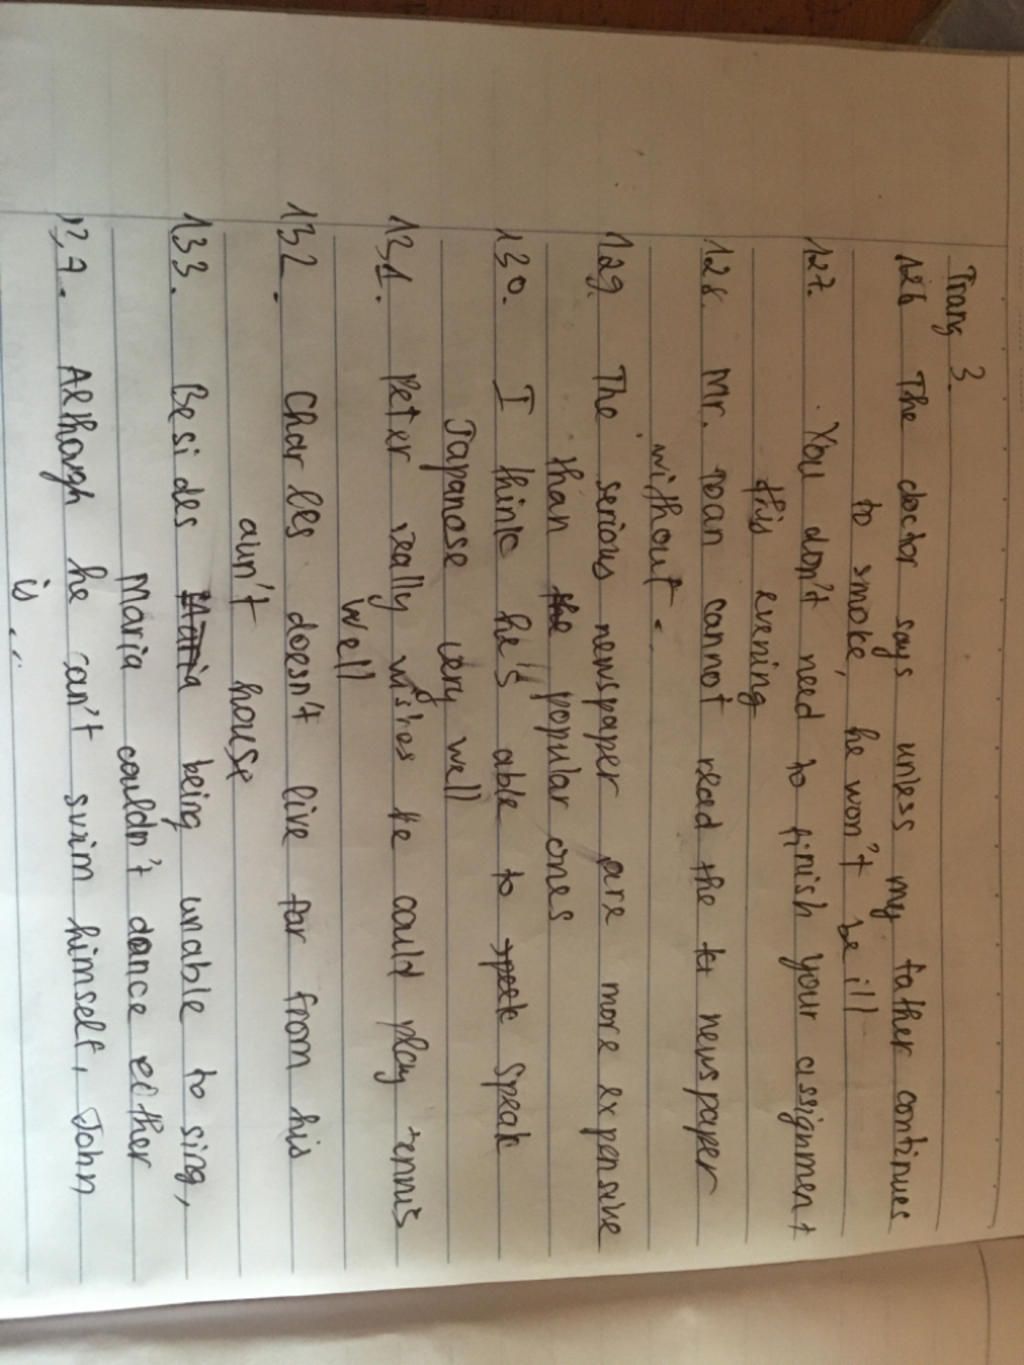 Trang 3.
126 The doctor says unless my father continues
to smoke, he won't be ill
127. You don't need to finish your assignment
this evening
128. Mr. Toan cannot read the newspaper
without.
129. The serious newspaper are more expensive
than the popular ones
130. I think he's able to speak
Japanese very well
131. Peter really wishes he could play tennis
well
132. Charles doesn't live far from his
aun't house
133. Besides being unable to sing,
Maria couldn't dance either
127. Although he can't swim himself, John
is ...